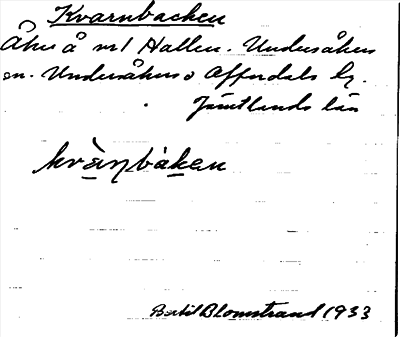 Kvarnbacken
Åker å nr 1 Hallen. Undersåkers
sn. Undersåkers o Offerdals tg.
Jämtlands län
kvànbàken
Bertil Blomstrand 1933